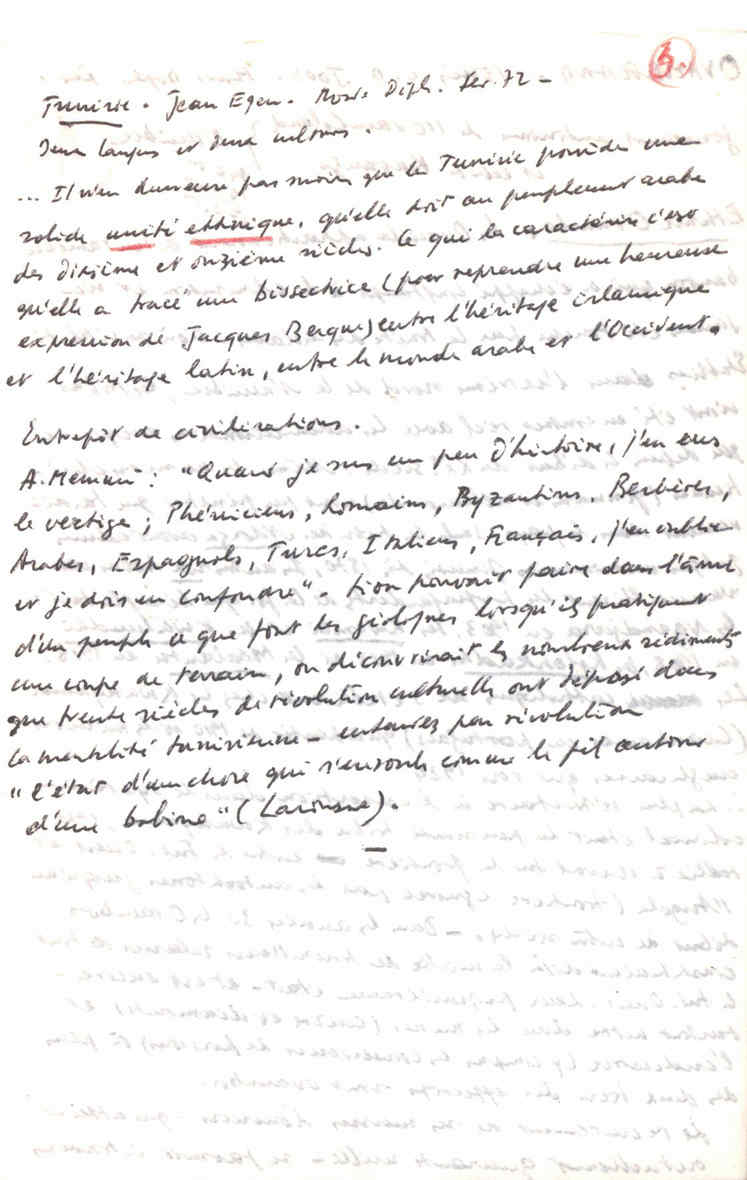 3.
Tunisie. Jean Egen. Monde Dipl. Fer. 72 –
Deux langues et deux cultures.
... Il n'en demeure pas moins que la Tunisie possède une
solide unité ethnique, qu'elle doit au peuplement arabe
des dixième et onzième siècles. Ce qui la caractérise c'est
qu'elle a tracé une bissectrice (pour reprendre une heureuse
expression de Jacques Berque) entre l'héritage islamique
et l'héritage latin, entre le monde arabe et l'Occident.
Entrepôt de civilisations.
A. Memmi : "Quand je sus un peu d'histoire, j'en eus
le vertige ; Phéniciens, Romains, Byzantins, Berbères,
Arabes, Espagnols, Turcs, Italiens, Français, j'en oublie
et je dois en confondre". Si on pouvait faire dans l'âme
d'un peuple ce que font les géologues lorsqu'ils pratiquent
une coupe de terrain, on découvrirait les nombreux sédiments
que trente siècles de révolution culturelle ont déposé dans
la mentalité tunisienne – entendez par révolution
"l'état d'une chose qui s'enroule comme le fil autour
d'une bobine" (Larousse).